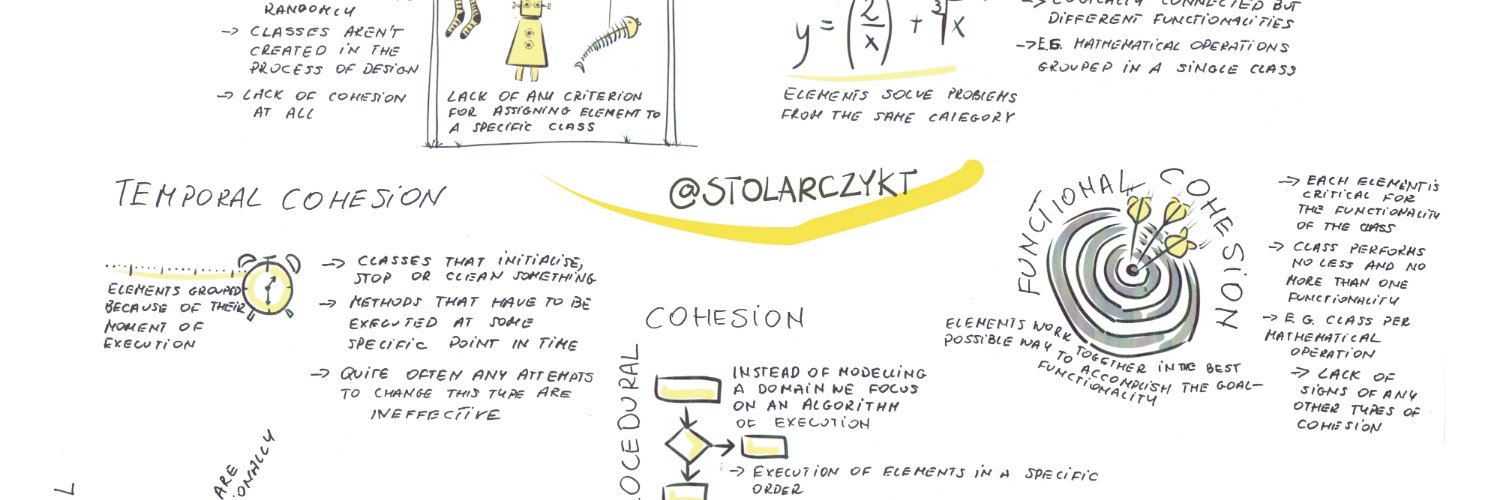 RANDOMLY
-> CLASSES AREN'T
CREATED IN THE
PROCESS OF DESIGN
-> LACK OF COHESION
AT ALL
LACK OF ANY CRITERION
FOR ASSIGNING ELEMENT TO
A SPECIFIC CLASS
y = (2/x) + ³√x
ELEMENTS SOLVE PROBLEMS
FROM THE SAME CATEGORY
-> LOGICALLY CONNECTED BUT
DIFFERENT FUNCTIONALITIES
-> E.G. MATHEMATICAL OPERATIONS
GROUPED IN A SINGLE CLASS
@STOLARCZYKT
TEMPORAL COHESION
ELEMENTS GROUPED
BECAUSE OF THEIR
MOMENT OF
EXECUTION
-> CLASSES THAT INITIALISE,
STOP OR CLEAN SOMETHING
-> METHODS THAT HAVE TO BE
EXECUTED AT SOME
SPECIFIC POINT IN TIME
-> QUITE OFTEN ANY ATTEMPTS
TO CHANGE THIS TYPE ARE
INEFFECTIVE
FUNCTIONAL COHESION
ELEMENTS WORK TOGETHER IN THE BEST
POSSIBLE WAY TO ACCOMPLISH THE GOAL-
FUNCTIONALITY
-> EACH ELEMENT IS
CRITICAL FOR
THE FUNCTIONALITY
OF THE CLASS
-> CLASS PERFORMS
NO LESS AND NO
MORE THAN ONE
FUNCTIONALITY
-> E.G. CLASS PER
MATHEMATICAL
OPERATION
-> LACK OF
SIGNS OF ANY
OTHER TYPES OF
COHESION
COHESION
OCEDURAL
INSTEAD OF MODELLING
A DOMAIN WE FOCUS
ON AN ALGORITHM
OF EXECUTION
-> EXECUTION OF ELEMENTS IN A SPECIFIC
ORDER
ARE
IONALLY
L